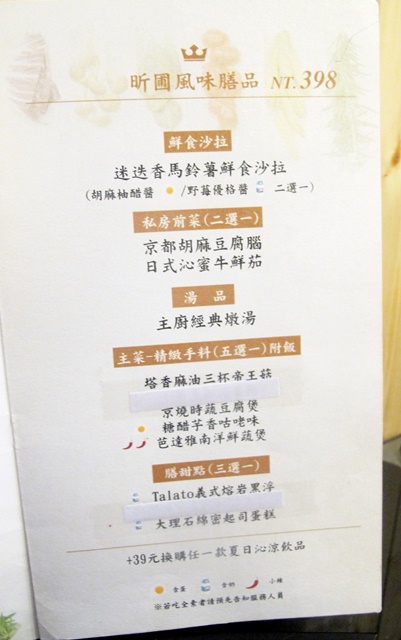 昕圃風味膳品 NT.398
鮮食沙拉
迷迭香馬鈴薯鮮食沙拉
(胡麻柚醋醬 /野莓優格醬 二選一)
私房前菜(二選一)
京都胡麻豆腐腦
日式沁蜜牛鮮茄
湯 品
主廚經典燉湯
主菜-精緻手料(五選一)附飯
塔香麻油三杯帝王菇
京燒時蔬豆腐煲
糖醋芋香咕咾味
芭達雅南洋鮮蔬煲
膳甜點(三選一)
Talato義式熔岩黑浮
大理石綿密起司蛋糕
+39元換購任一款夏日沁涼飲品
含蛋 含奶 小辣
※若吃全素者請預先告知服務人員